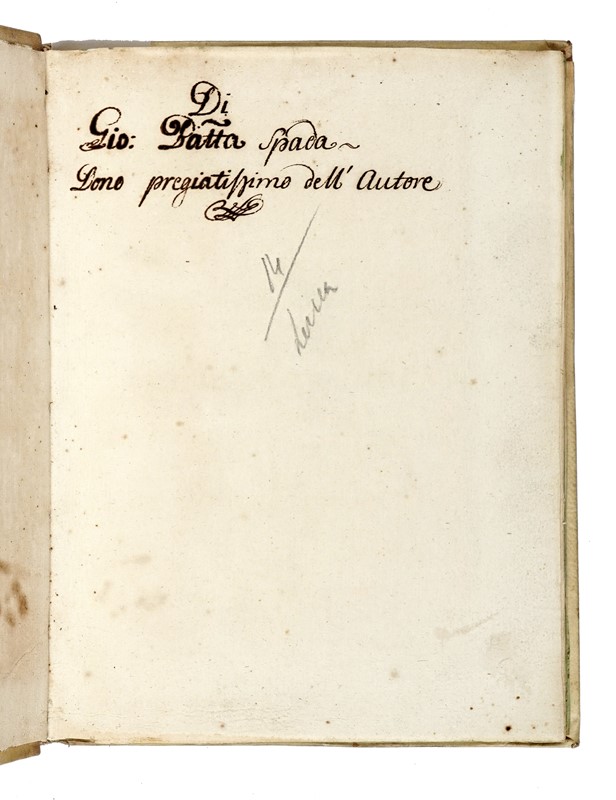 Di
Gio: Batta Spada~
Dono pregiatissimo dell' Autore